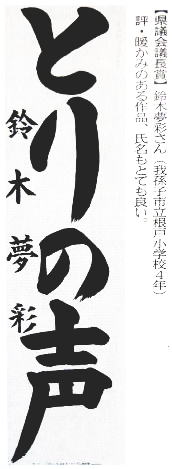 【県議会議長賞】鈴木夢彩さん（我孫子市立根戸小学校４年）
評・暖かみのある作品、氏名もとても良い。
とりの声
鈴木夢彩